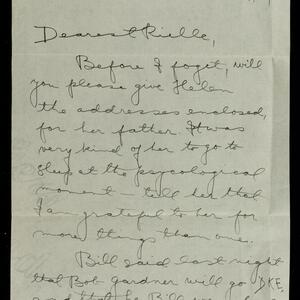 Dearest Rielle,
Before I foget, will
you please give Helen
the addresses enclosed,
for her father. It was
very kind of her to go to
sleep at the psycological
moment - tell her that
I am grateful to her for
more things than one.
Bill said last night
that Bob Gardner will go DKE,
and that he Bill